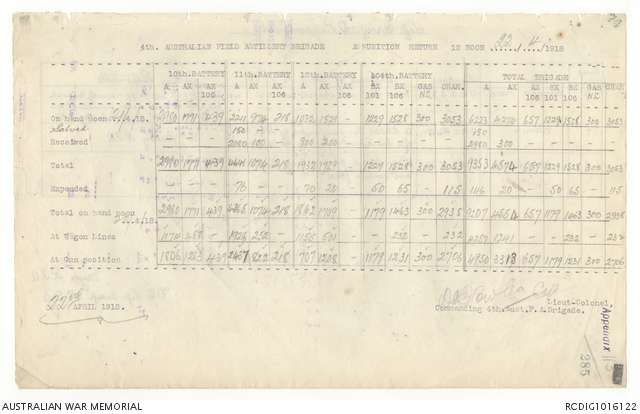 4th. AUSTRALIAN FIELD ARTILLERY BRIGADE AMMUNITION RETURN 12 NOON 22 / 4 / 1918
10th.BATTERY 11th.BATTERY 12th.BATTERY 104th.BATTERY TOTAL BRIGADE
A AX AX 106 A AX AX 106 A AX BX 101 BX GAS NC CHAR. A AX AX 106 BX 101 BX GAS NC CHAR.
On hand noon 4.18. 2980 1771 439 2211 974 218 1032 1529 1229 1528 300 3053 6223 4274 657 1229 1528 300 3053
Salved - - - 150 - - - - - - - - 150
Received - - - 2080 100 - 900 200 - - - - 2980 300
Total 2980 1771 439 4441 1074 218 1932 1729 1229 1528 300 3053 9353 4574 657 1229 1528 300 3053
Expended - - - 76 - - 70 20 50 65 - 115 146 20 - 50 65 - 115
Total on hand noon 4.18. 2980 1771 439 4365 1074 218 1862 1709 1179 1463 300 2938 9207 4554 657 1179 1463 300 2938
At Wagon Lines 1174 488 - 1928 252 - 1155 501 - 232 - 232 4257 1241 - - 232 - 232
At Gun position 1806 1283 439 2437 822 218 707 1208 1179 1231 300 2706 4950 3313 657 1179 1231 300 2706
22nd APRIL 1918.
Lieut-Colonel,
Commanding 4th.Aust.F.A.Brigade.
Appendix
285
AUSTRALIAN WAR MEMORIAL RCDIG1016122